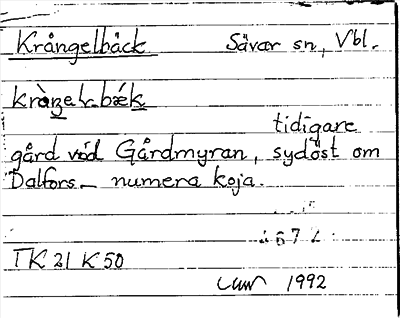 Krångelbäck Sävar sn, Vbl.
tidigare
gård vid Gårdmyran, sydöst om
Dalfors – numera koja.
TK 21 K 50
1992